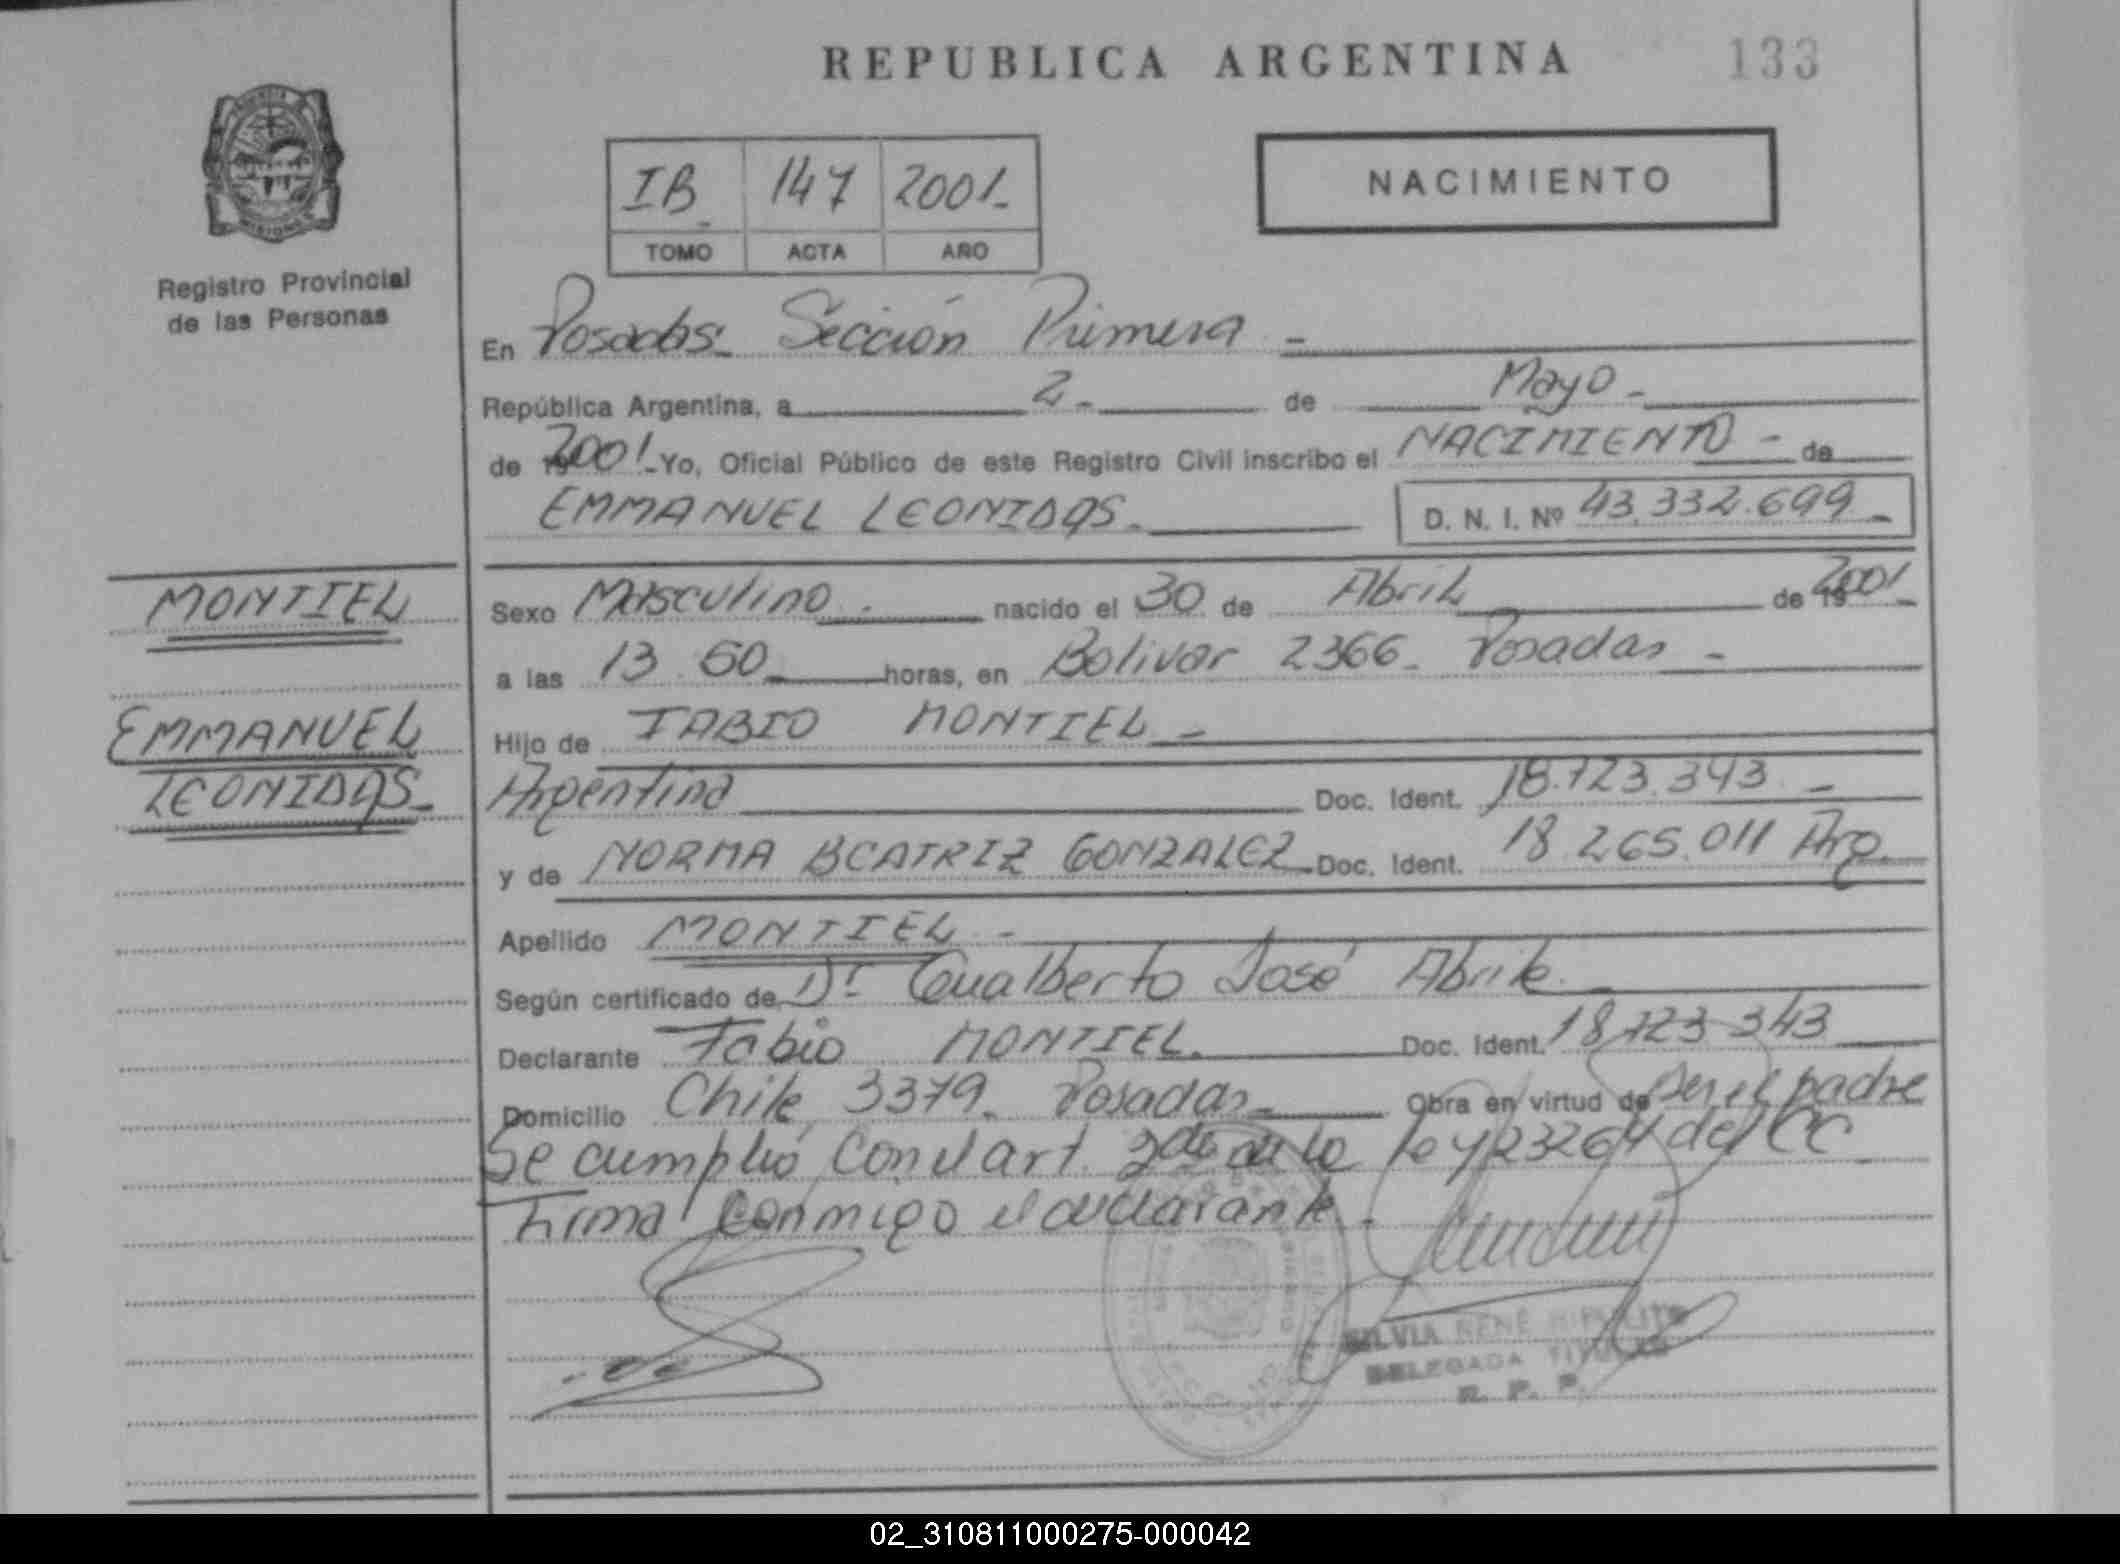 REPUBLICA ARGENTINA
133
IB 147 2001
TOMO ACTA AÑO
NACIMIENTO
Registro Provincial
de las Personas
En Posadas. Sección Primera
República Argentina, a 2 de Mayo
de 2001 Yo, Oficial Público de este Registro Civil inscribo el NACIMIENTO de
EMMANUEL LEONIDAS D. N. I. Nº 43.332.699
MONTIEL
EMMANUEL
LEONIDAS
Sexo Masculino nacido el 30 de Abril de 2001
a las 13 horas, en Bolivar 2366 Posadas
Hijo de FABIO MONTIEL
Argentina Doc. Ident. 18.723.343
y de NORMA BEATRIZ GONZALEZ Doc. Ident. 18.265.011 Arg.
Apellido MONTIEL
Según certificado de Dr Gualberto José Abrile
Declarante Fabio MONTIEL Doc. Ident. 18.723.343
Domicilio Chile 3379 Posadas Obra en virtud de ser el padre
Se cumplió con el art. de la ley 23264 del CC
Firma conmigo el declarante
SILVIA RENÉ HIPOLITO
DELEGADA TITULAR
R. P. P.
02_310811000275-000042